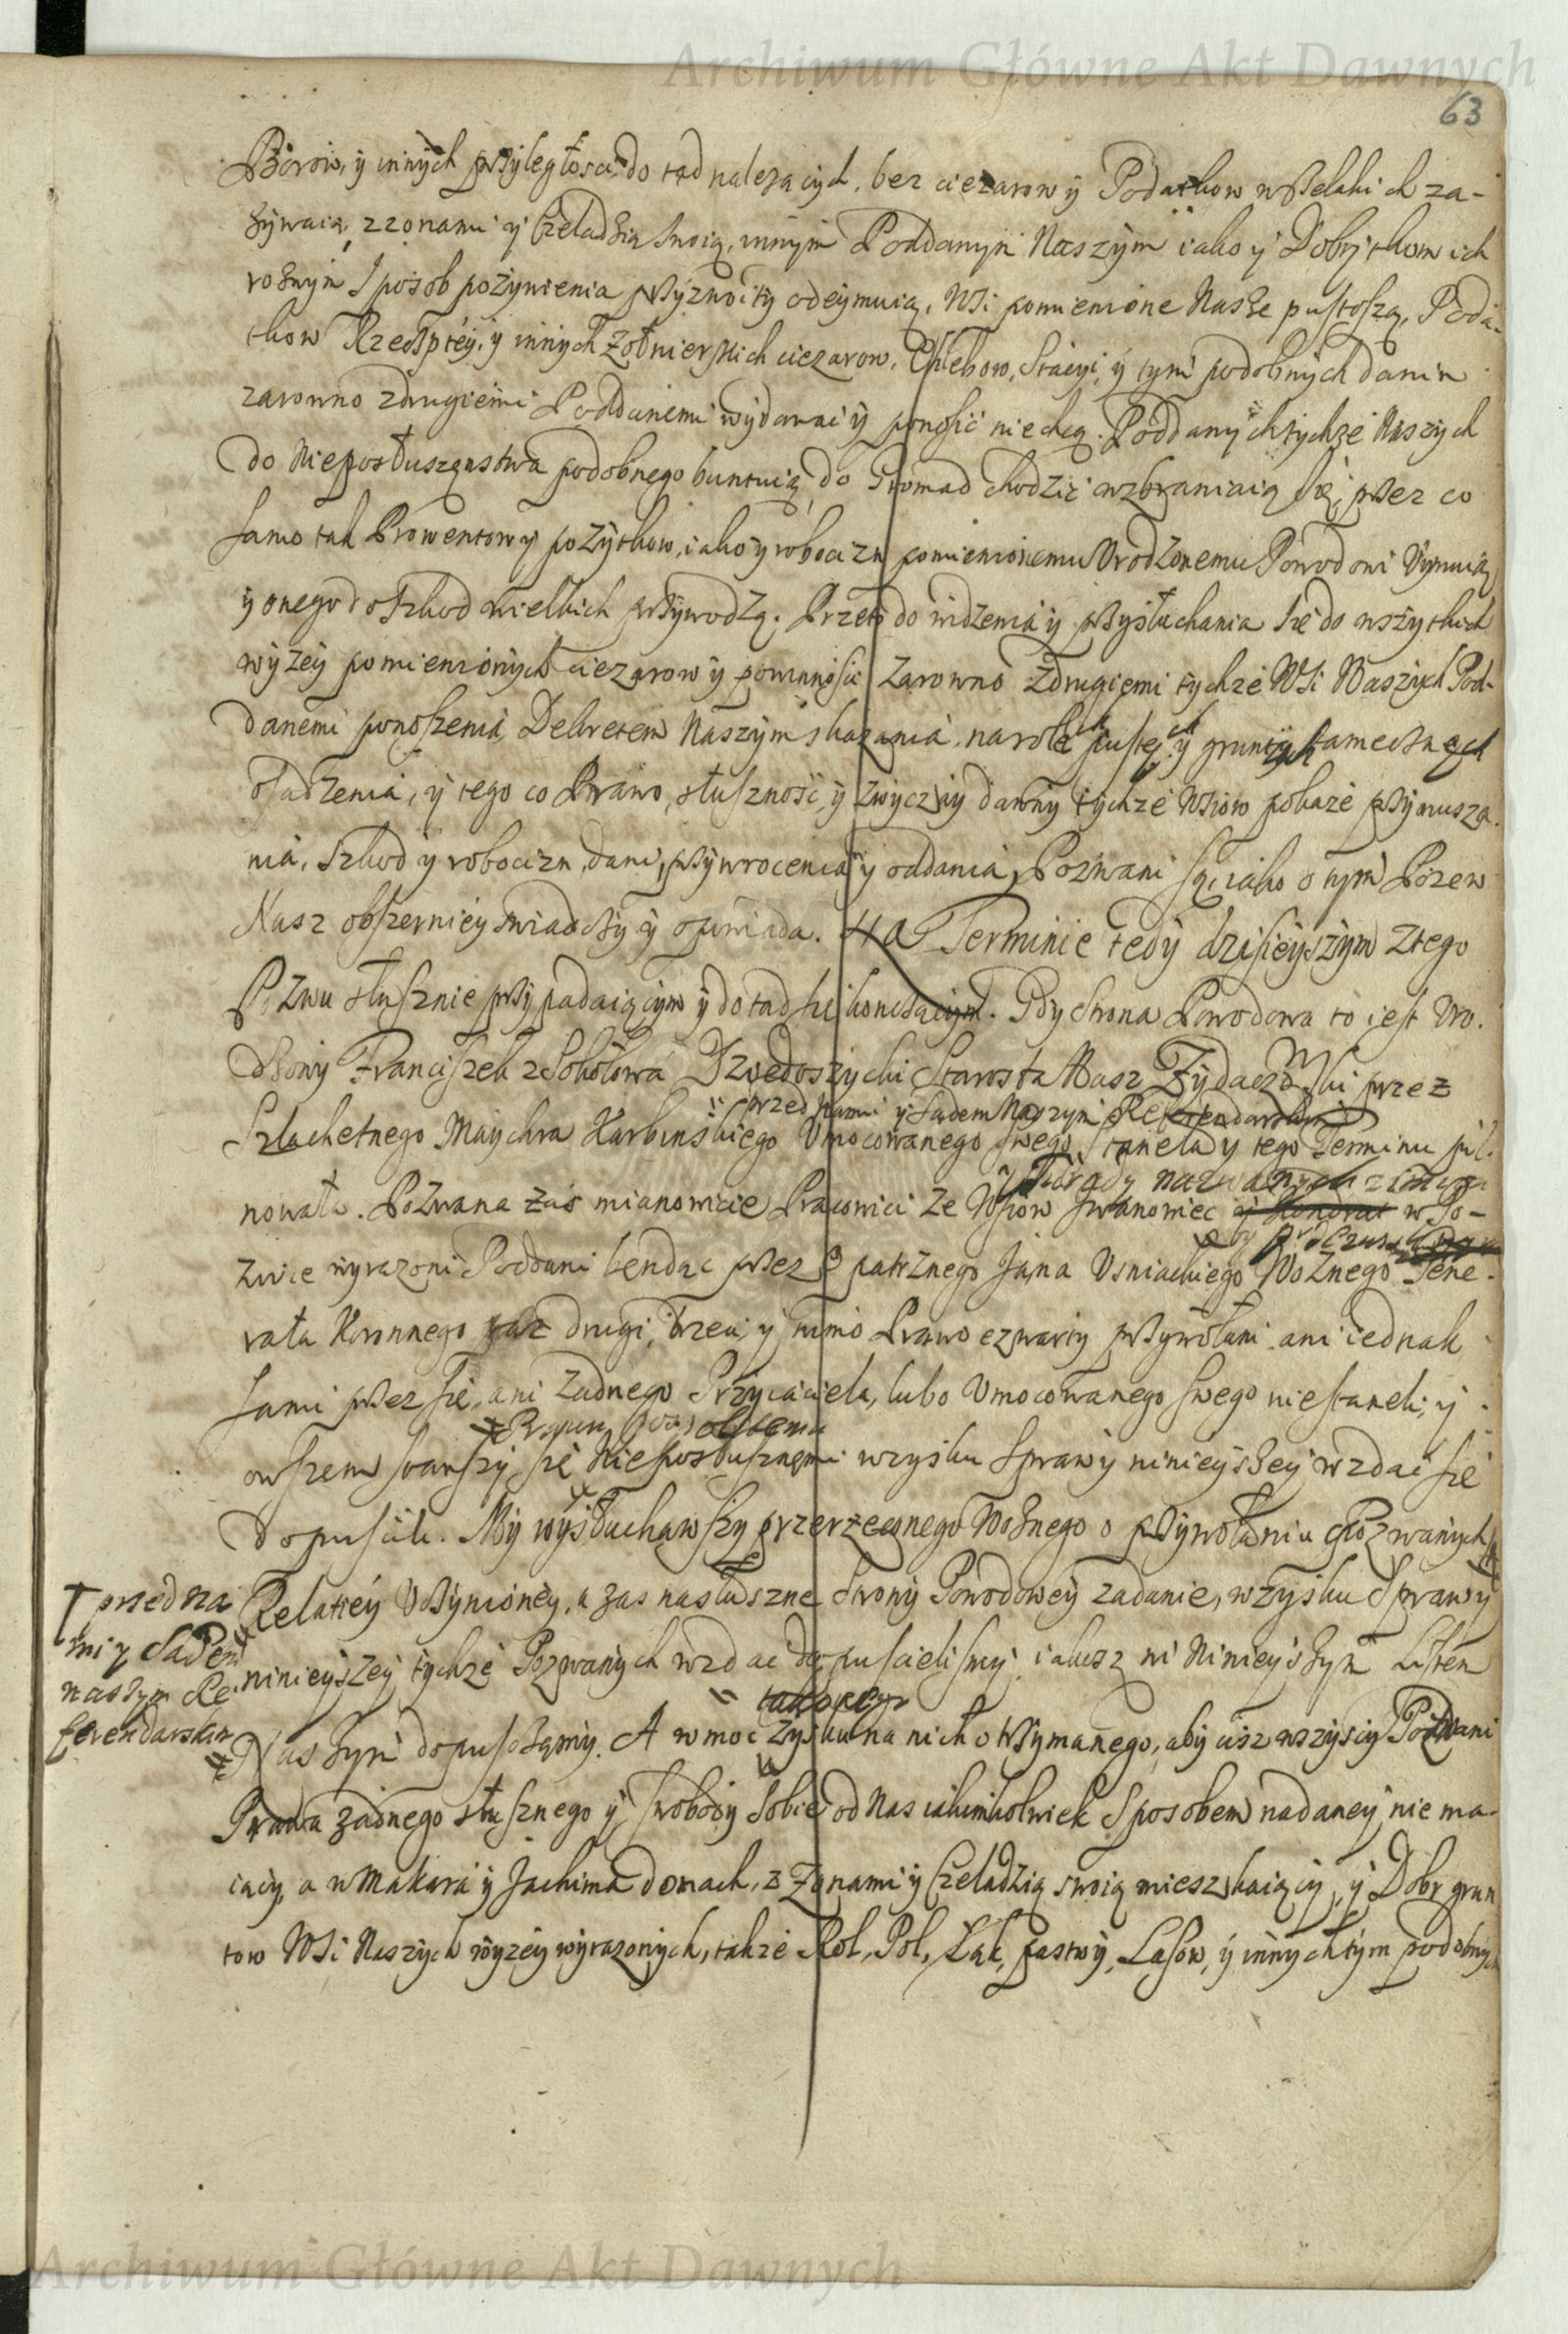 Archiwum Główne Akt Dawnych
63
Borow, y innych przyległosci do tąd nalezących, bez cięzarow y Podatkow wszelakich za-
zywaią, z zonami y Czeladzią swoią, innym Poddanym Naszym iako y Dobytkom ich
roznym Sposob pozywienia przyzwoity odeymuią, Wsi pomienione Nasze pustoszą, Poda-
tkow Rzectptey, y innych Zołnierskich cięzarow, Chlebow, Stacyi, y tym podobnych danin
zarowno z drugiemi Poddanemi wydawac y ponosić niechcą. Poddanych tychze Naszych
do Nieposłuszęnstwa podobnego buntuią, do Gromad chodzić wzbraniaią się, przez co
samo tak Prowentow y pozytkow, iako y robocizn pomienionemu Vrodzonemu Powodowi Vymuią
y onego do szkod wielkich przywodzą. Przeto do widzenia y przysłuchania się do wszytkich
wyzey pomienionych cięzarow y powinnosci zarowno z drugiemi tychze Wsi Naszych Pod-
danemi ponoszenia, Dekretem Naszym skazania, na rolách pustych y gruntách tamecznych
osadzenia, y tego co Prawo, słuszność, y zwyczay dawny tychze Wsiow pokaze przymusza-
nia, szkod y robocizn, dani, przywrocenia y oddania, Pozwani są, iako o tym Pozew
Nasz obszerniey swiadczy y opiewa. Na Terminie tedy dzisieyszym z tego
Pozwu słusznie przypadaiącym y do tąd się konczącym. Gdy Strona Powodowa to iest Vro-
dzony Franciszek z Sokołowá Dzieduszycki Starosta Nasz Zydaczowski przez
przed Nami y Sądem Naszym Referendarskim
Szlachetnego Maychra Karbinskiego Vmocowanego swego, stanęła y tego Terminu pil-
y Teirady nazwanych
nowała. Pozwana zaś mianowicie Pracowici ze Wsiow Iwanowiec y w Po-
zwie wyrazoni Poddani bendąc przez Opatrznego Jana Vsniackiego Woznego Gene-
rała Koronnego raz drugi, trzeci, y mimo Prawo czwarty przywołani, ani iednak
sami przez się, ani zadnego Przyiaciela, lubo Vmocowanego swego niestaneli, y
owszem stawszy się Nieposłusznemi w zysku Sprawy ninieyszey wzdać się
dopuścili. My wysłuchawszy przerzeconego Woznego o przywołaniu Pozwanych
† przed na
mi y Sądem
naszym Re
ferendarskim
Relatiey Vczynioney, a zas na słuszne Strony Powodowey ządanie, w zysku Sprawy
ninieyszey tychze Pozwanych wzdac dopuscielismy, iakosz ni Ninieyszym Listem
Naszym dopuszczamy. A w moc zysku na nich otrzymanego, aby cisz wszyscy Pozwani
Prawa zadnego słusznego y swobody sobie od Nas iakimkolwiek Sposobem nadaney nie ma-
iący, a w Makará y Jachima domach, z Zonami y Czeladzią swoią mieszkaiący, y Dobr grun
tow Wsi Naszych wyzey wyrazonych, takze Rol, Pol, Łąk, pastwy, Lasow, y innych tym podobnych
Archiwum Główne Akt Dawnych